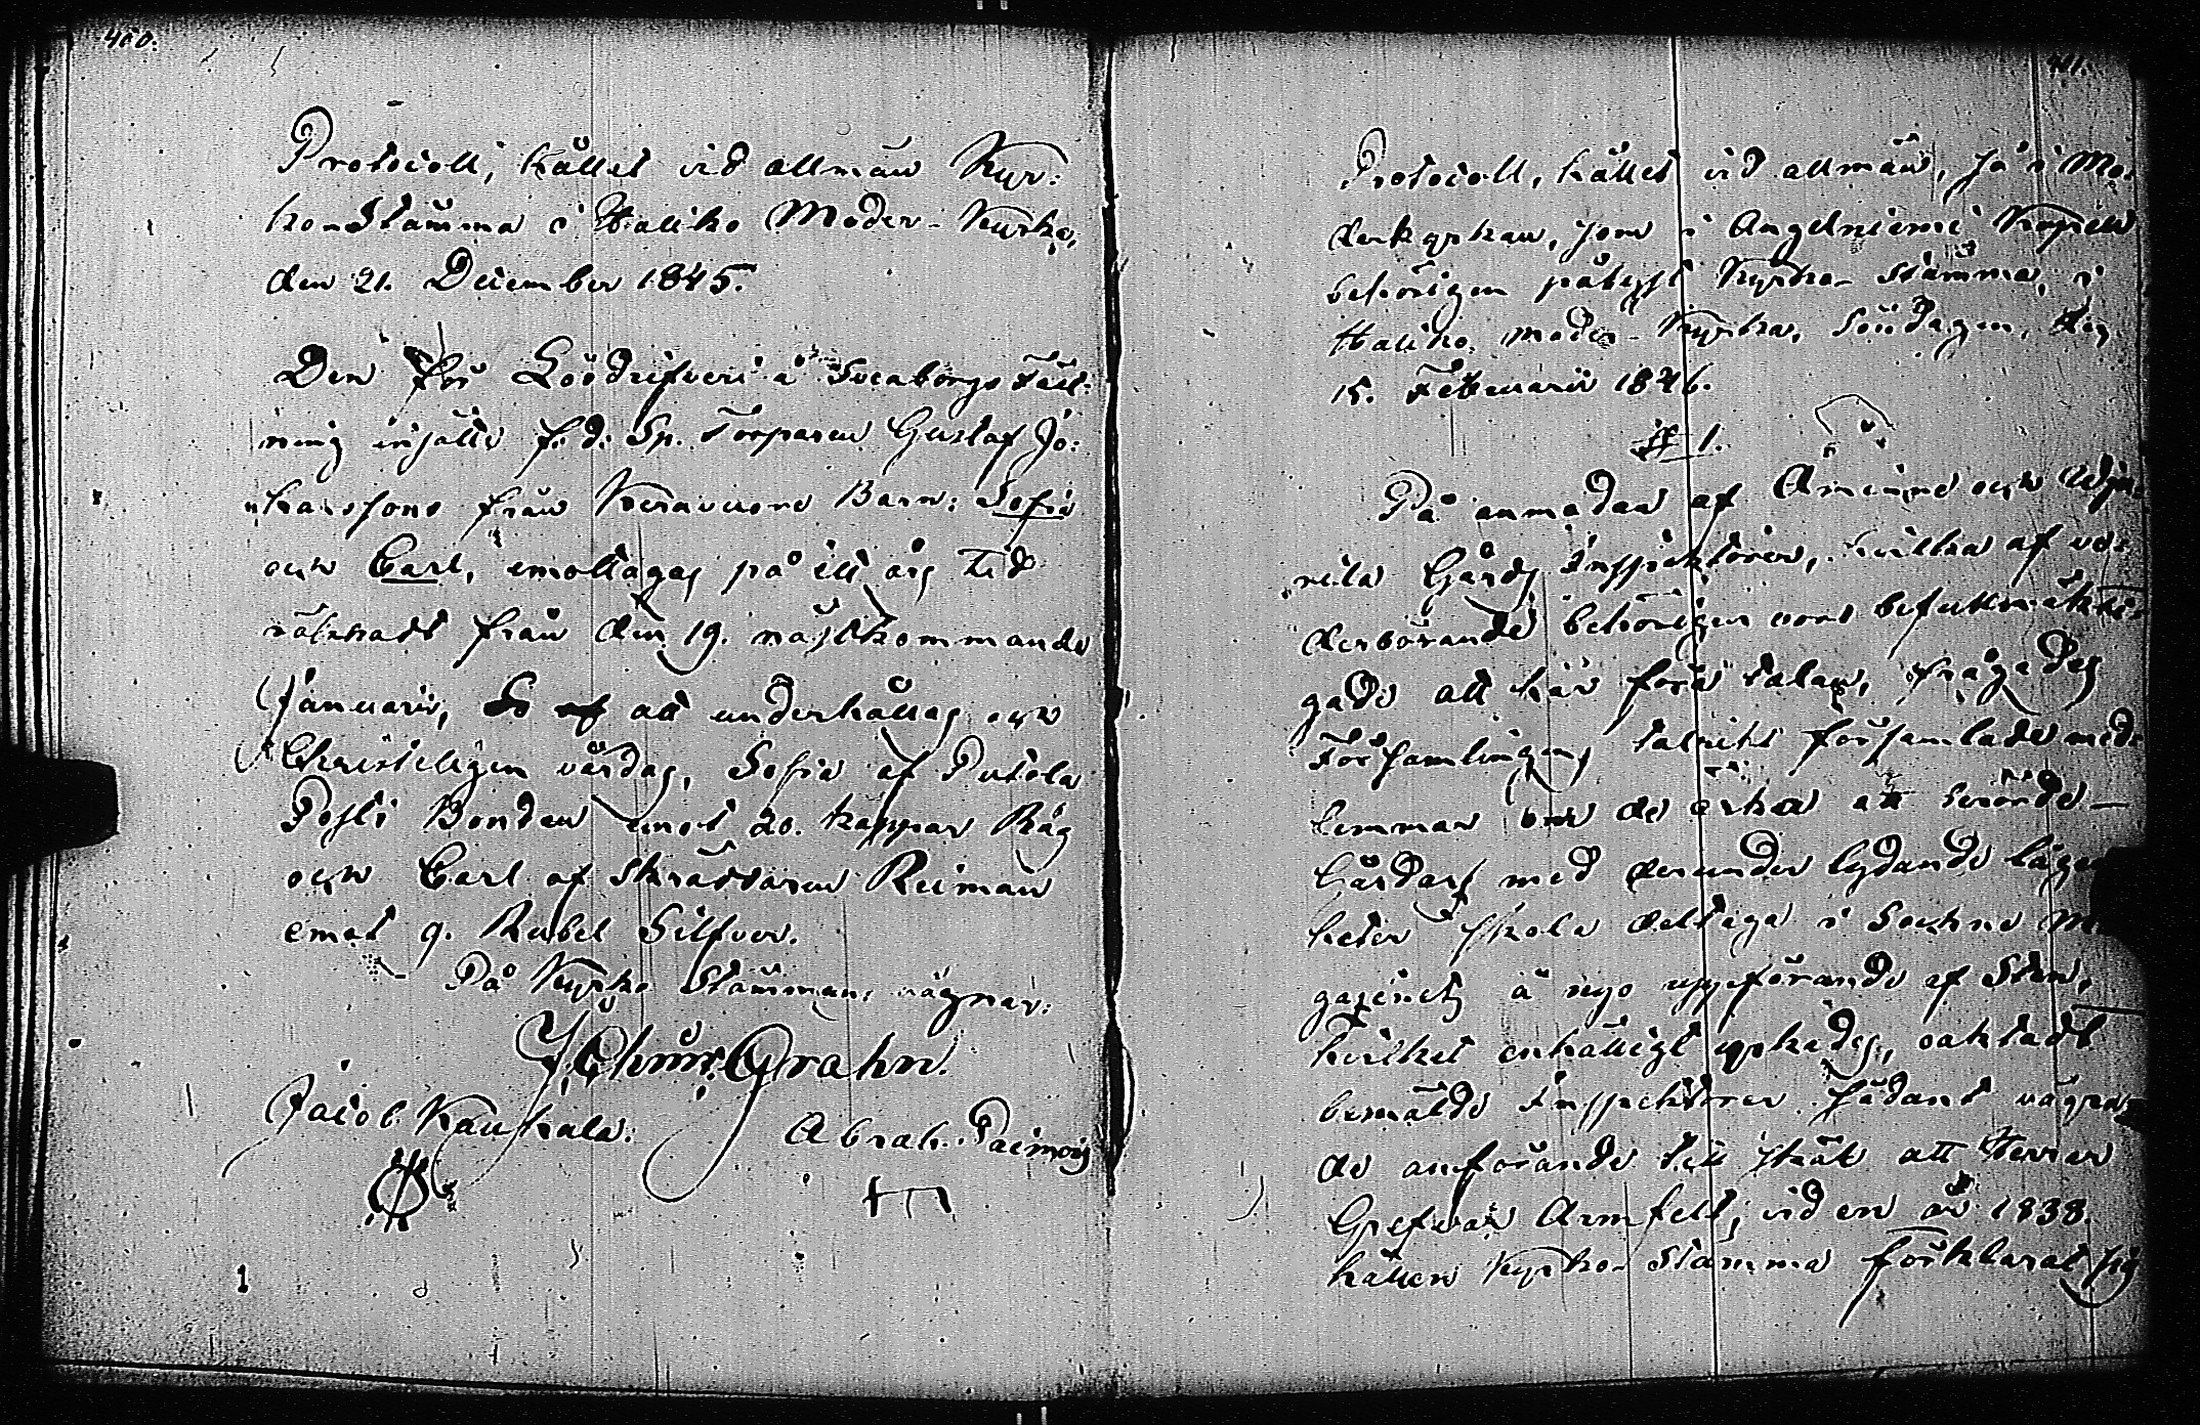 400.
Protocoll, hållet vid allmän Kyr:
kostämma i Haliko Moder-Kyrka,
den 21. December 1845.
Den för Lösdrifveri å Sveaborgs Fäst:
ning insatte f. d. Sp. Torparen Gustaf Jo:
hanssons från Keravuore Barn: Sofia
och Carl, emottages på ett års tid
räknadt från den 19. nästkommande
Januarii, att underhållas och
Christeligen vårdas, Sofia af Putola
Bonden emot 20. kappar Råg
och Carl af Skräddaren Reiman
emot 9. Rubel Silfver.
På Kyrko Stämmans vägnar:
J. Chr. Grahn.
Jacob Kaukala: Abrah. Paimois
401.
Protocoll, hållet vid allmän, så i Mo:
derkyrkan, som i Angelniemi Kapell
behörigen pålyst Kyrko-Stämma, i
Haliko Moder-Kyrka, Söndagen, den
15. Februarii 1846.
§ 1.
På anmodan af Åminne och
Gårds Inspektorer, hvilka af ve:
derbörande behörigen voro befullmäkti:
gade att här föra talan, frågades
Församlingens talrikt församlade med:
lemmar om de att berörde
Gårdar med derunder lydande lägen:
heter skola deltaga i Sockne Ma:
gasinets å nyo uppförande af Sten,
hvilket enhälligt, oaktadt
bemälde Inspektorer sådant vägra:
de anförande till skäl att Herrar
Grefvar Armfelt, vid en år 1838.
hållen Kyrko-Stämma förklarat sig